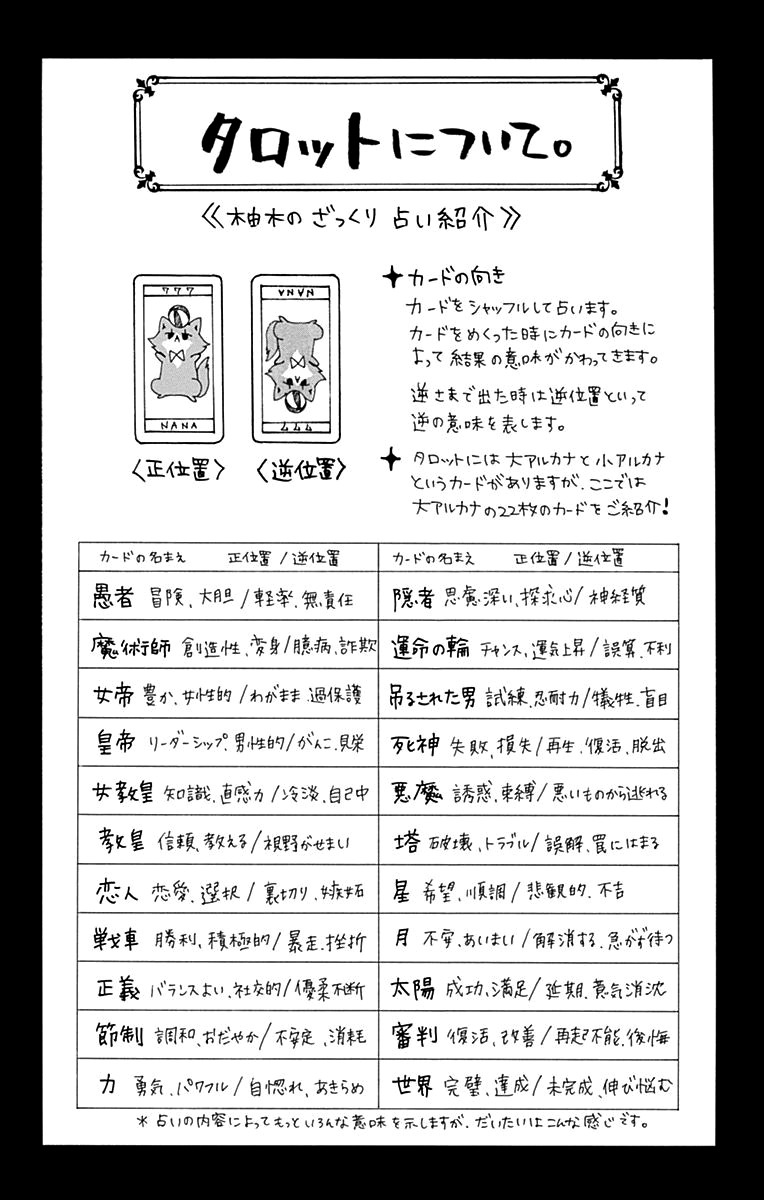 タロットについて。
《柚木の ざっくり 占い紹介》
777
NANA
〈正位置〉
NANA
777
〈逆位置〉
カードの向き
カードをシャッフルして占います。
カードをめくった時にカードの向きに
よって結果の意味がかわってきます。
逆さまで出た時は逆位置といって
逆の意味を表します。
タロットには大アルカナと小アルカナ
というカードがありますが、ここでは
大アルカナの22枚のカードをご紹介!
カードの名まえ 正位置/逆位置
愚者 冒険、大胆/軽率、無責任
魔術師 創造性、変身/臆病、詐欺
女帝 豊か、女性的/わがまま、過保護
皇帝 リーダーシップ、男性的/がんこ、見栄
女教皇 知識、直感力/冷淡、自己中
教皇 信頼、教える/視野がせまい
恋人 恋愛、選択/裏切り、嫉妬
戦車 勝利、積極的/暴走、挫折
正義 バランスよい、社交的/優柔不断
節制 調和、おだやか/不安定、消耗
力 勇気、パワフル/自惚れ、あきらめ
カードの名まえ 正位置/逆位置
隠者 思慮深い、探求心/神経質
運命の輪 チャンス、運気上昇/誤算、不利
吊るされた男 試練、忍耐力/犠牲、盲目
死神 失敗、損失/再生、復活、脱出
悪魔 誘惑、束縛/悪いものから逃れる
塔 破壊、トラブル/誤解、罠にはまる
星 希望、順調/悲観的、不吉
月 不安、あいまい/解消する、急がず待つ
太陽 成功、満足/延期、意気消沈
審判 復活、改善/再起不能、後悔
世界 完璧、達成/未完成、伸び悩む
*占いの内容によってもっといろんな意味を示しますが、だいたいはこんな感じです。